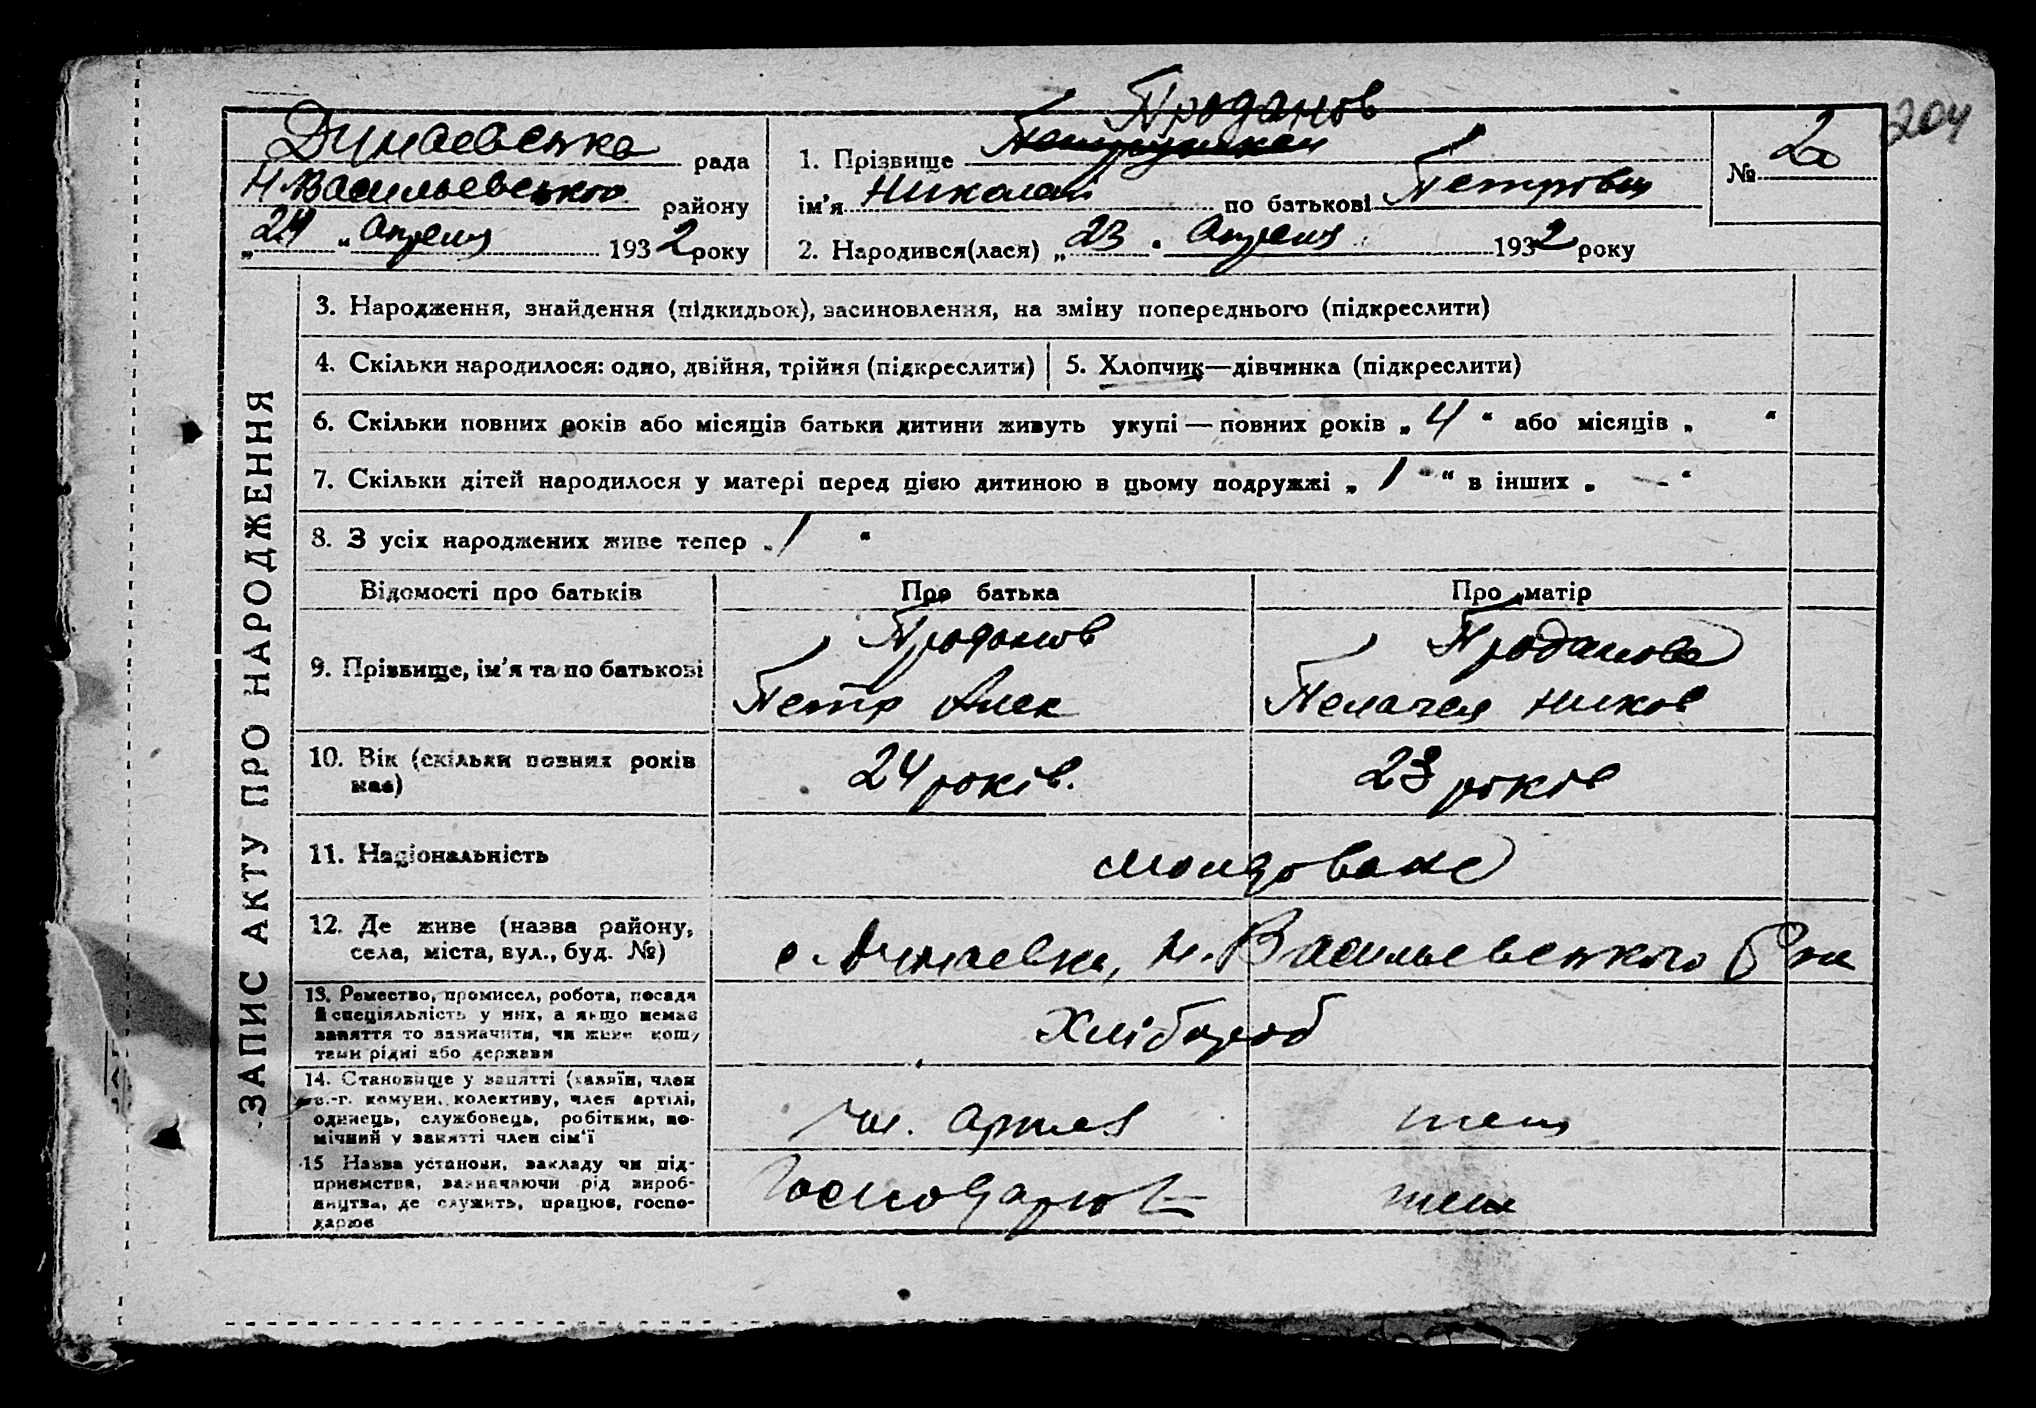 Проданов
204
Дунаевська рада
Н Васильевського району
„24 “ Апреля 1932 року
1. Прізвище
ім'я Николай по батькові Петрович
2. Народився(лася) „ 23 “ Апреля 1932 року
№
ЗАПИС АКТУ ПРО НАРОДЖЕННЯ
3. Народження, знайдення (підкидьок), засиновлення, на зміну попереднього (підкреслити)
4. Скільки народилося: одно, двійня, трійня (підкреслити) 5. Хлопчик—дівчинка (підкреслити)
6. Скільки повних років або місяців батьки дитини живуть укупі — повних років „ 4 “ або місяців „ “
7. Скільки дітей народилося у матері перед цією дитиною в цьому подружжі „ 1 “ в інших „ — “
8. З усіх народжених живе тепер „ 1 “
Відомості про батьків Про батька Про матір
9. Прізвище, ім'я та по батькові
Проданов
Петр Алек
Проданова
Пелагея Ников
10. Вік (скільки повних років
має)
24 років.
23 років
11. Національність
молдоване
12. Де живе (назва району,
села, міста, вул., буд. №)
с. Дунаевка, Н. Васильевського Р на
13. Ремество, промисел, робота, посада
й спеціяльність у них, а якщо немає
заняття то зазначити, чи живе кошу
тами рідні або держави
Хлібороб
14. Становище у занятті (хазяїн, член
с.-г. комуни, колективу, член артілі,
одинець, службовець, робітник, по-
мічний у занятті член сім'ї
чл. артел
тещ
15 Назва установи, закладу чи під-
приємства, зазначаючи рід вироб-
ництва, де служить, працює, госпо-
дарює
Господарює